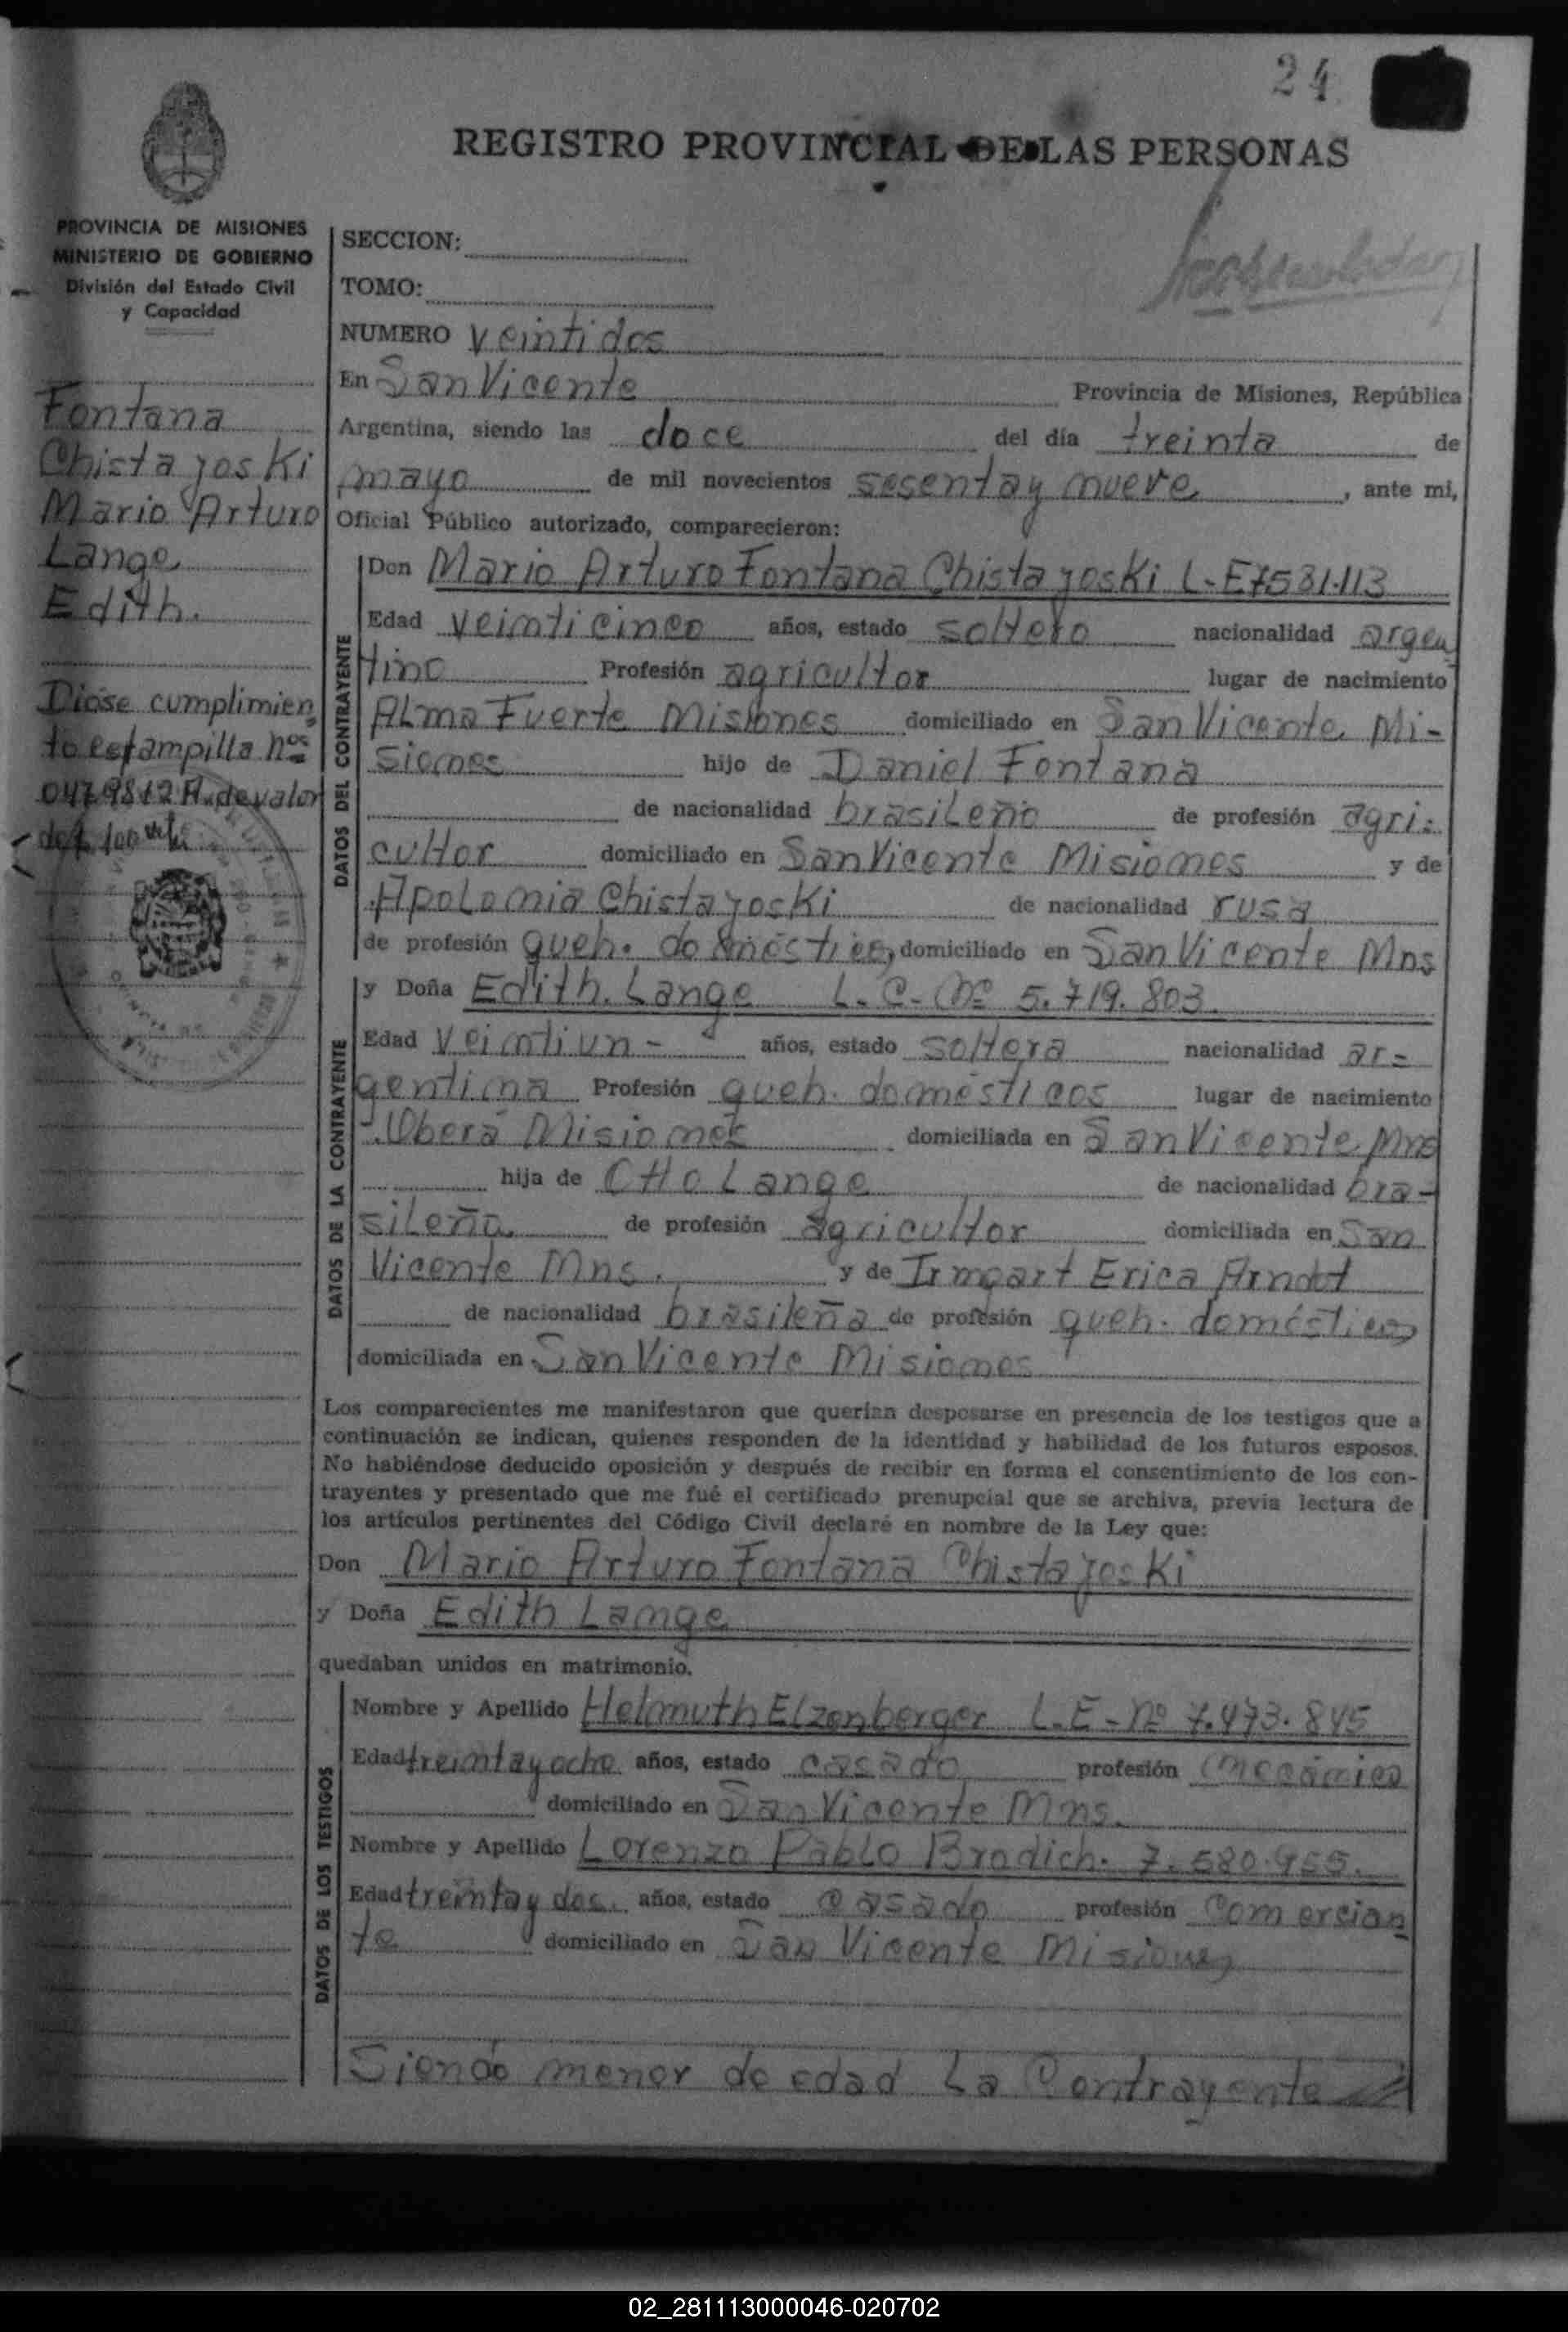 24
REGISTRO PROVINCIAL DE LAS PERSONAS
PROVINCIA DE MISIONES
MINISTERIO DE GOBIERNO
División del Estado Civil
y Capacidad
Fontana
Chistayoski
Mario Arturo
Lange
Edith.
Diose cumplimien
to estampilla nos
SECCION:
TOMO:
NUMERO veintidos
En San Vicente Provincia de Misiones, República
Argentina, siendo las doce del día treinta de
mayo de mil novecientos sesenta y nueve, ante mi,
Oficial Público autorizado, comparecieron:
DATOS DEL CONTRAYENTE
Don Mario Arturo Fontana Chistayoski L-E7531.113
Edad veinticinco años, estado soltero nacionalidad argen
tino Profesión agricultor lugar de nacimiento
ALma Fuerte Misiones domiciliado en San Vicente Mi-
siones hijo de Daniel Fontana
de nacionalidad brasileño de profesión agri-
cultor domiciliado en San Vicente Misiones y de
Apolonia Chistayoski de nacionalidad rusa
de profesión queh. domésticos domiciliado en San Vicente Mns
DATOS DE LA CONTRAYENTE
y Doña Edith. Lange L.C. Nº 5.719.803
Edad veintiun- años, estado soltera nacionalidad ar-
gentina Profesión queh. domésticos lugar de nacimiento
Oberá Misiones domiciliada en San Vicente Mns
hija de Otto Lange de nacionalidad bra-
sileña de profesión agricultor domiciliada en San
Vicente Mns. y de Irmgart Erica Arndt
de nacionalidad brasileña de profesión queh. domésticos
domiciliada en San Vicente Misiones
Los comparecientes me manifestaron que querían desposarse en presencia de los testigos que a
continuación se indican, quienes responden de la identidad y habilidad de los futuros esposos.
No habiéndose deducido oposición y después de recibir en forma el consentimiento de los con-
trayentes y presentado que me fué el certificado prenupcial que se archiva, previa lectura de
los artículos pertinentes del Código Civil declaré en nombre de la Ley que:
Don Mario Arturo Fontana Chistayoski
y Doña Edith Lange
quedaban unidos en matrimonio.
DATOS DE LOS TESTIGOS
Nombre y Apellido Helmuth Elzenberger L.E-Nº 7.473.845
Edad treinta y ocho años, estado casado profesión mecánico
domiciliado en San Vicente Mns.
Nombre y Apellido Lorenzo Pablo Brodich. 7.580.955.
Edad treinta y dos. años, estado casado profesión comercian
te domiciliado en San Vicente Misiones
Siendo menor de edad La Contrayente
02_281113000046-020702